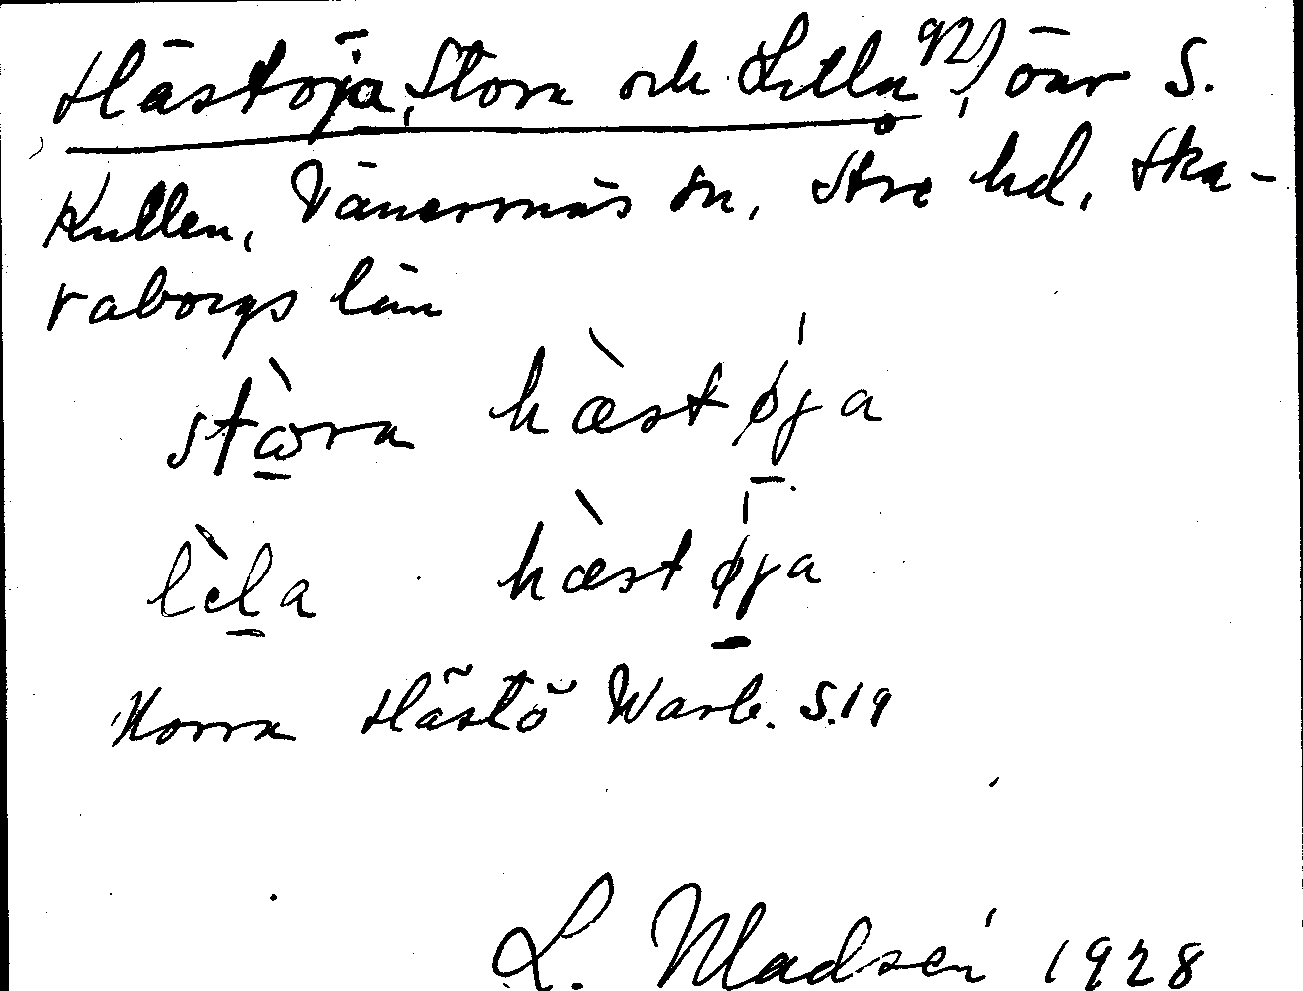 Hästöja, Stora och Lilla 92), öar S.
Kullen, Vänersnäs sn, Åse hd, Ska-
raborgs län
stὰ̱ra hæ̀stǿ̱ja
lὲḻa hæ̀stǿ̱ja
Norra Hästö Warb. S. 19
L. Madsén 1928